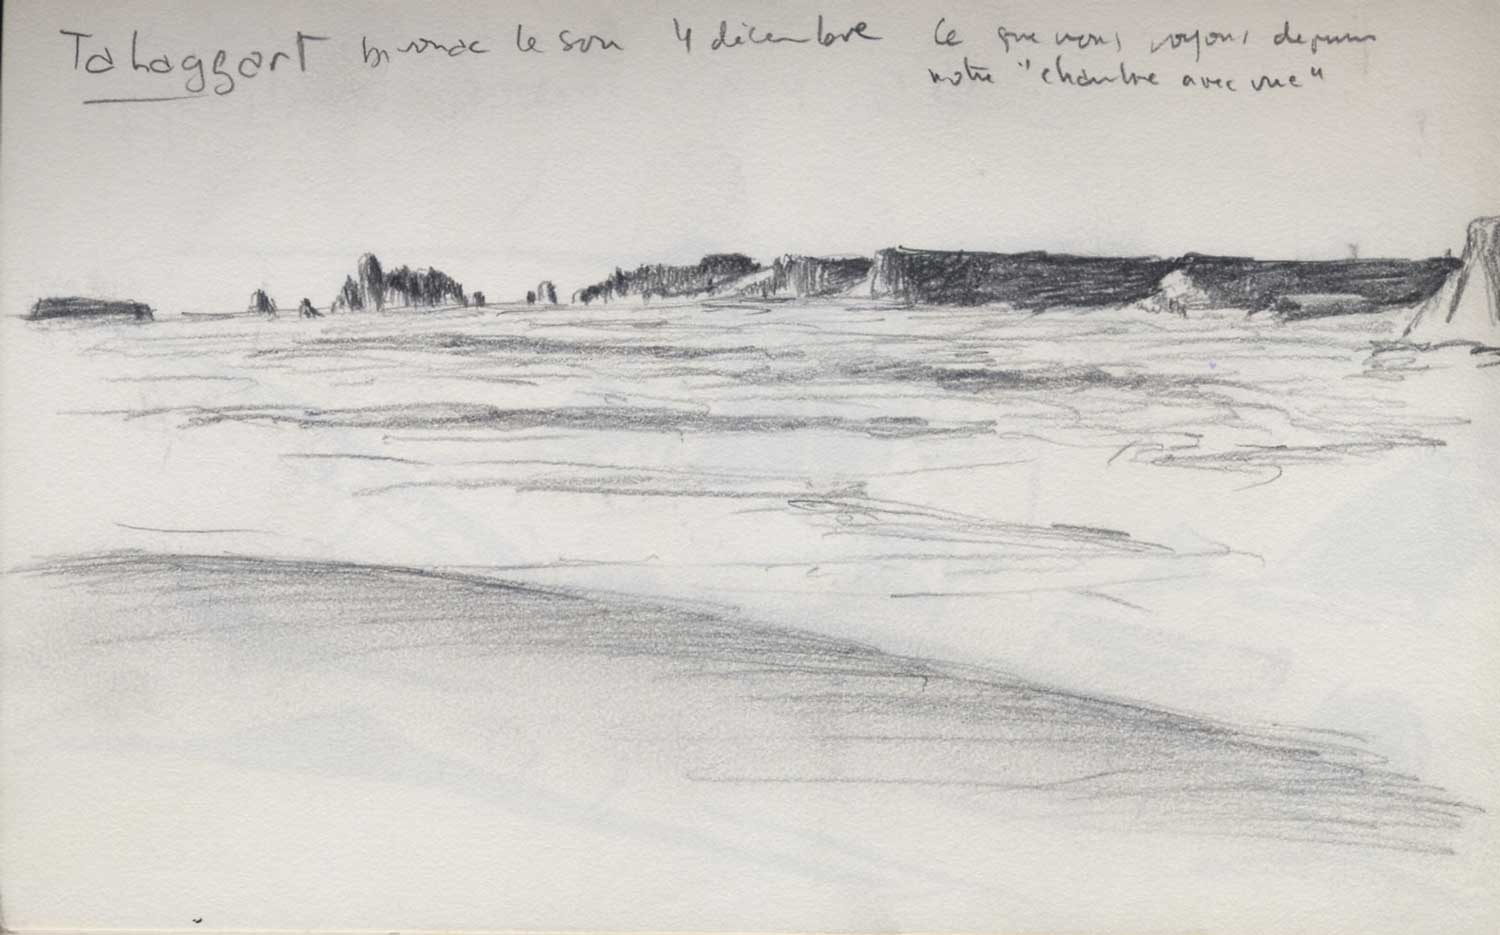 Tahaggart bivouac le soir 4 décembre Ce que nous voyons depuis
notre "chambre avec vue"